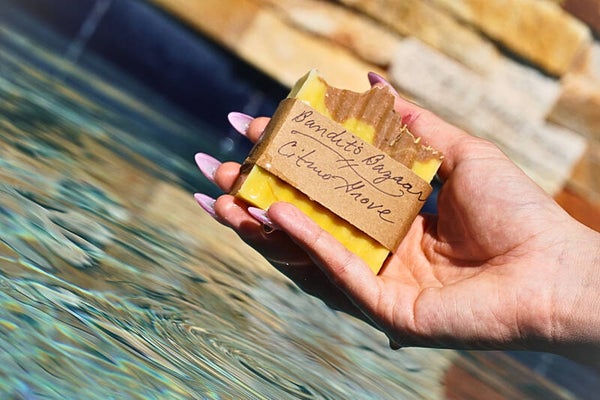 Bandit's Bazaar
Citrus Grove